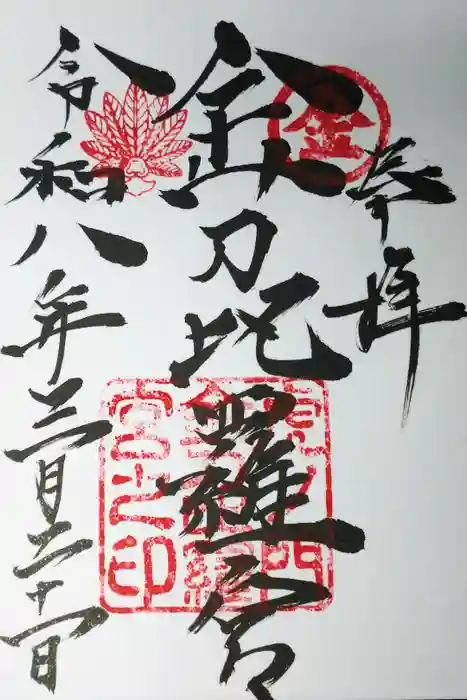 奉拝
金
金刀比羅宮
虎ノ門
金刀比羅
宮之印
令和八年三月二十一日